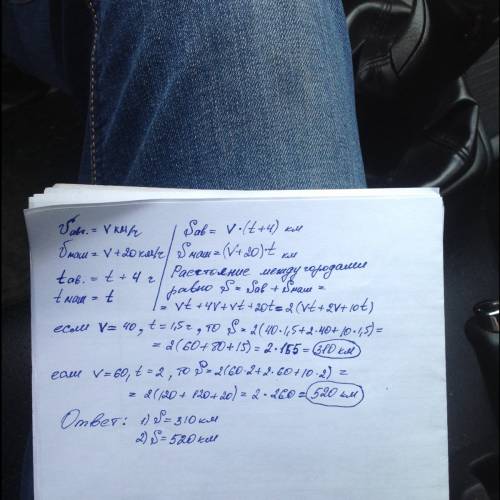 Vав. = V км/ч
Vмаш = V+20 км/ч
tав. = t + 4 ч
tмаш = t
Sав = V·(t+4) км
Sмаш = (V+20)·t км
Расстояние между городами
равно S = Sав + Sмаш =
= Vt + 4V + Vt + 20t = 2(Vt + 2V + 10t)
если V = 40, t = 1,5 ч, то S = 2(40·1,5 + 2·40 + 10·1,5) =
= 2(60 + 80 + 15) = 2·155 = 310 км
если V = 60, t = 2, то S = 2(60·2 + 2·60 + 10·2) =
= 2(120 + 120 + 20) = 2·260 = 520 км
Ответ: 1) S = 310 км
2) S = 520 км